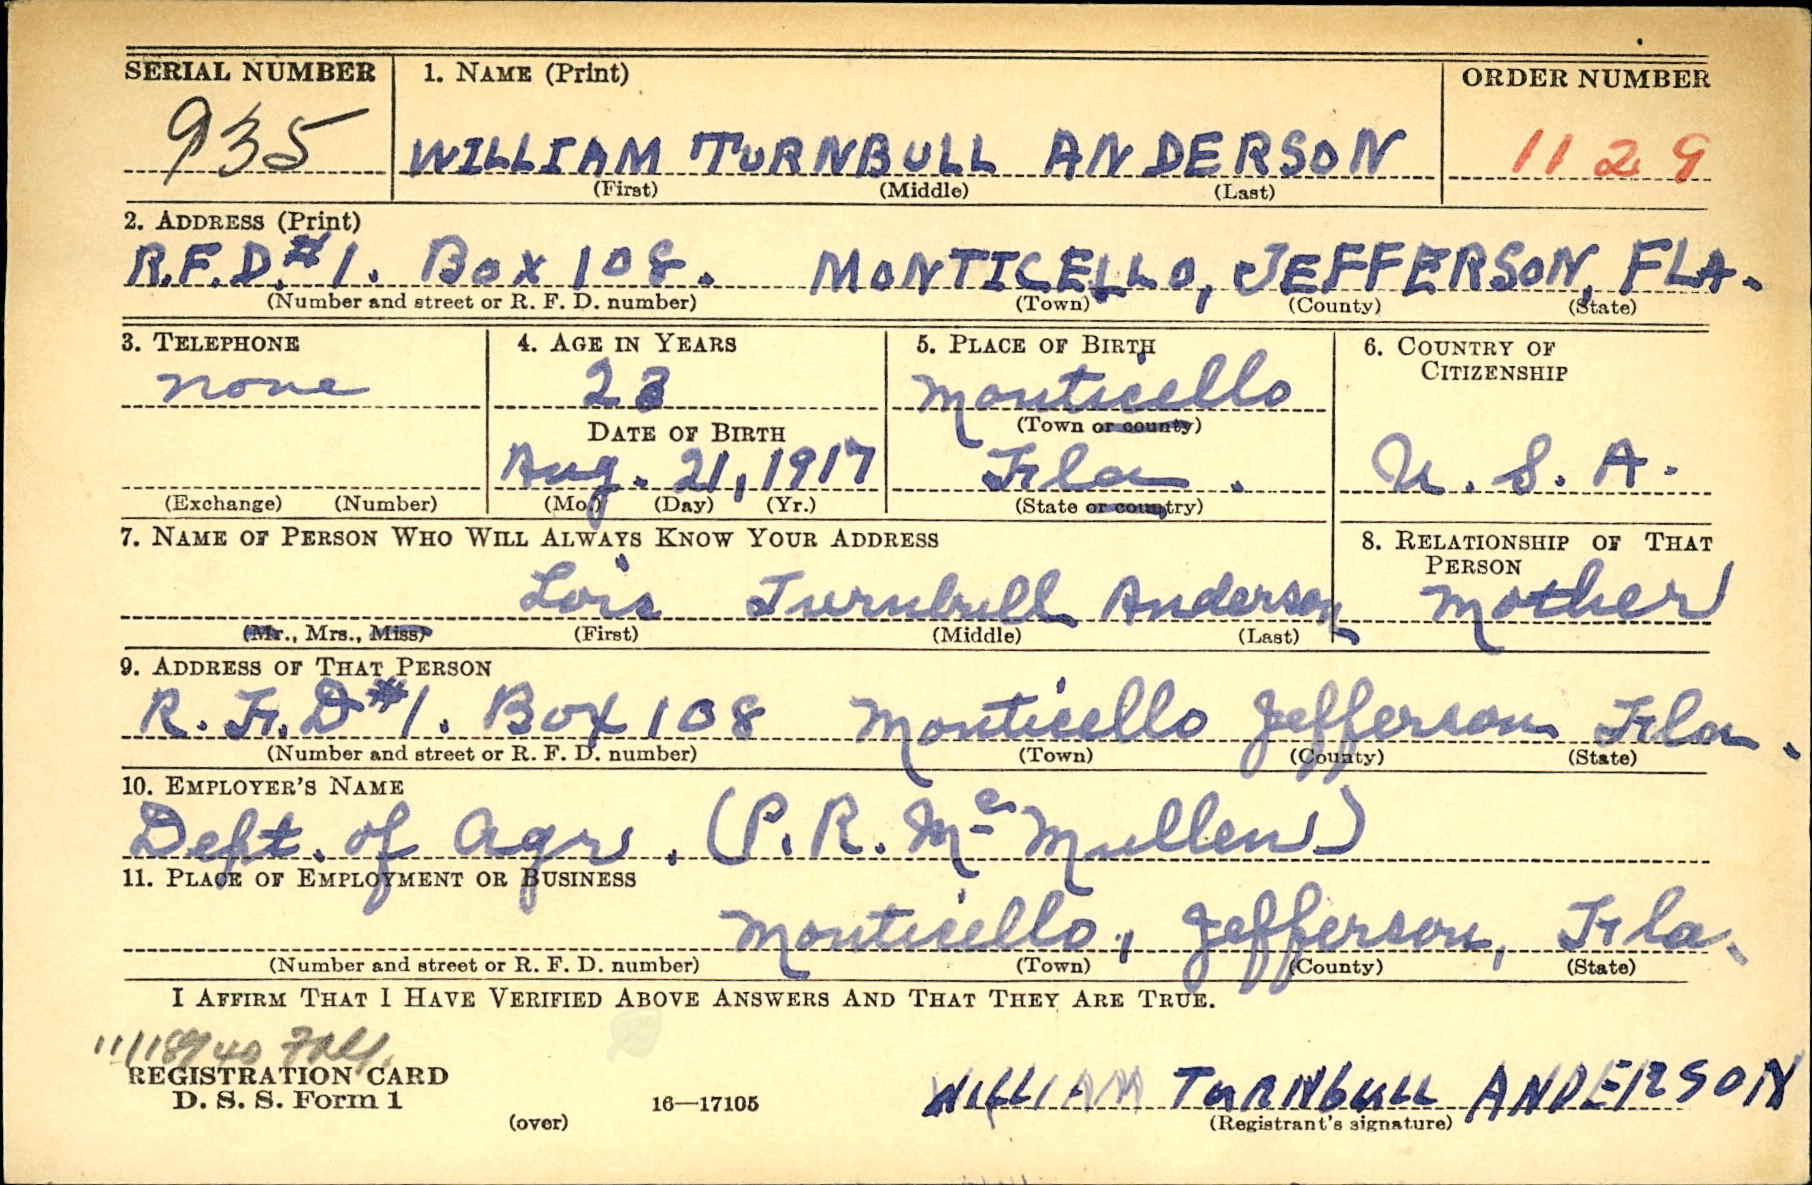 SERIAL NUMBER 1. NAME (Print) ORDER NUMBER
935 WILLIAM TURNBULL ANDERSON 1129
(First) (Middle) (Last)
2. ADDRESS (Print)
R.F.D. #1. Box 108. MONTICELLO, JEFFERSON, FLA.
(Number and street or R. F. D. number) (Town) (County) (State)
3. TELEPHONE 4. AGE IN YEARS 5. PLACE OF BIRTH 6. COUNTRY OF
CITIZENSHIP
none 23 Monticello
(Town or county)
DATE OF BIRTH
Aug. 21, 1917 Fla. U. S. A.
(Exchange) (Number) (Mo.) (Day) (Yr.) (State or country)
7. NAME OF PERSON WHO WILL ALWAYS KNOW YOUR ADDRESS 8. RELATIONSHIP OF THAT
PERSON
Lois Turnbull Anderson Mother
(Mr., Mrs., Miss) (First) (Middle) (Last)
9. ADDRESS OF THAT PERSON
R. F. D #1. Box 108 Monticello Jefferson Fla.
(Number and street or R. F. D. number) (Town) (County) (State)
10. EMPLOYER'S NAME
Dept. of Agr. (P. R. McMullen)
11. PLACE OF EMPLOYMENT OR BUSINESS
Monticello, Jefferson, Fla.
(Number and street or R. F. D. number) (Town) (County) (State)
I AFFIRM THAT I HAVE VERIFIED ABOVE ANSWERS AND THAT THEY ARE TRUE.
11/18/40
REGISTRATION CARD
D. S. S. Form 1 WILLIAM TURNBULL ANDERSON
(over) 16—17105 (Registrant's signature)